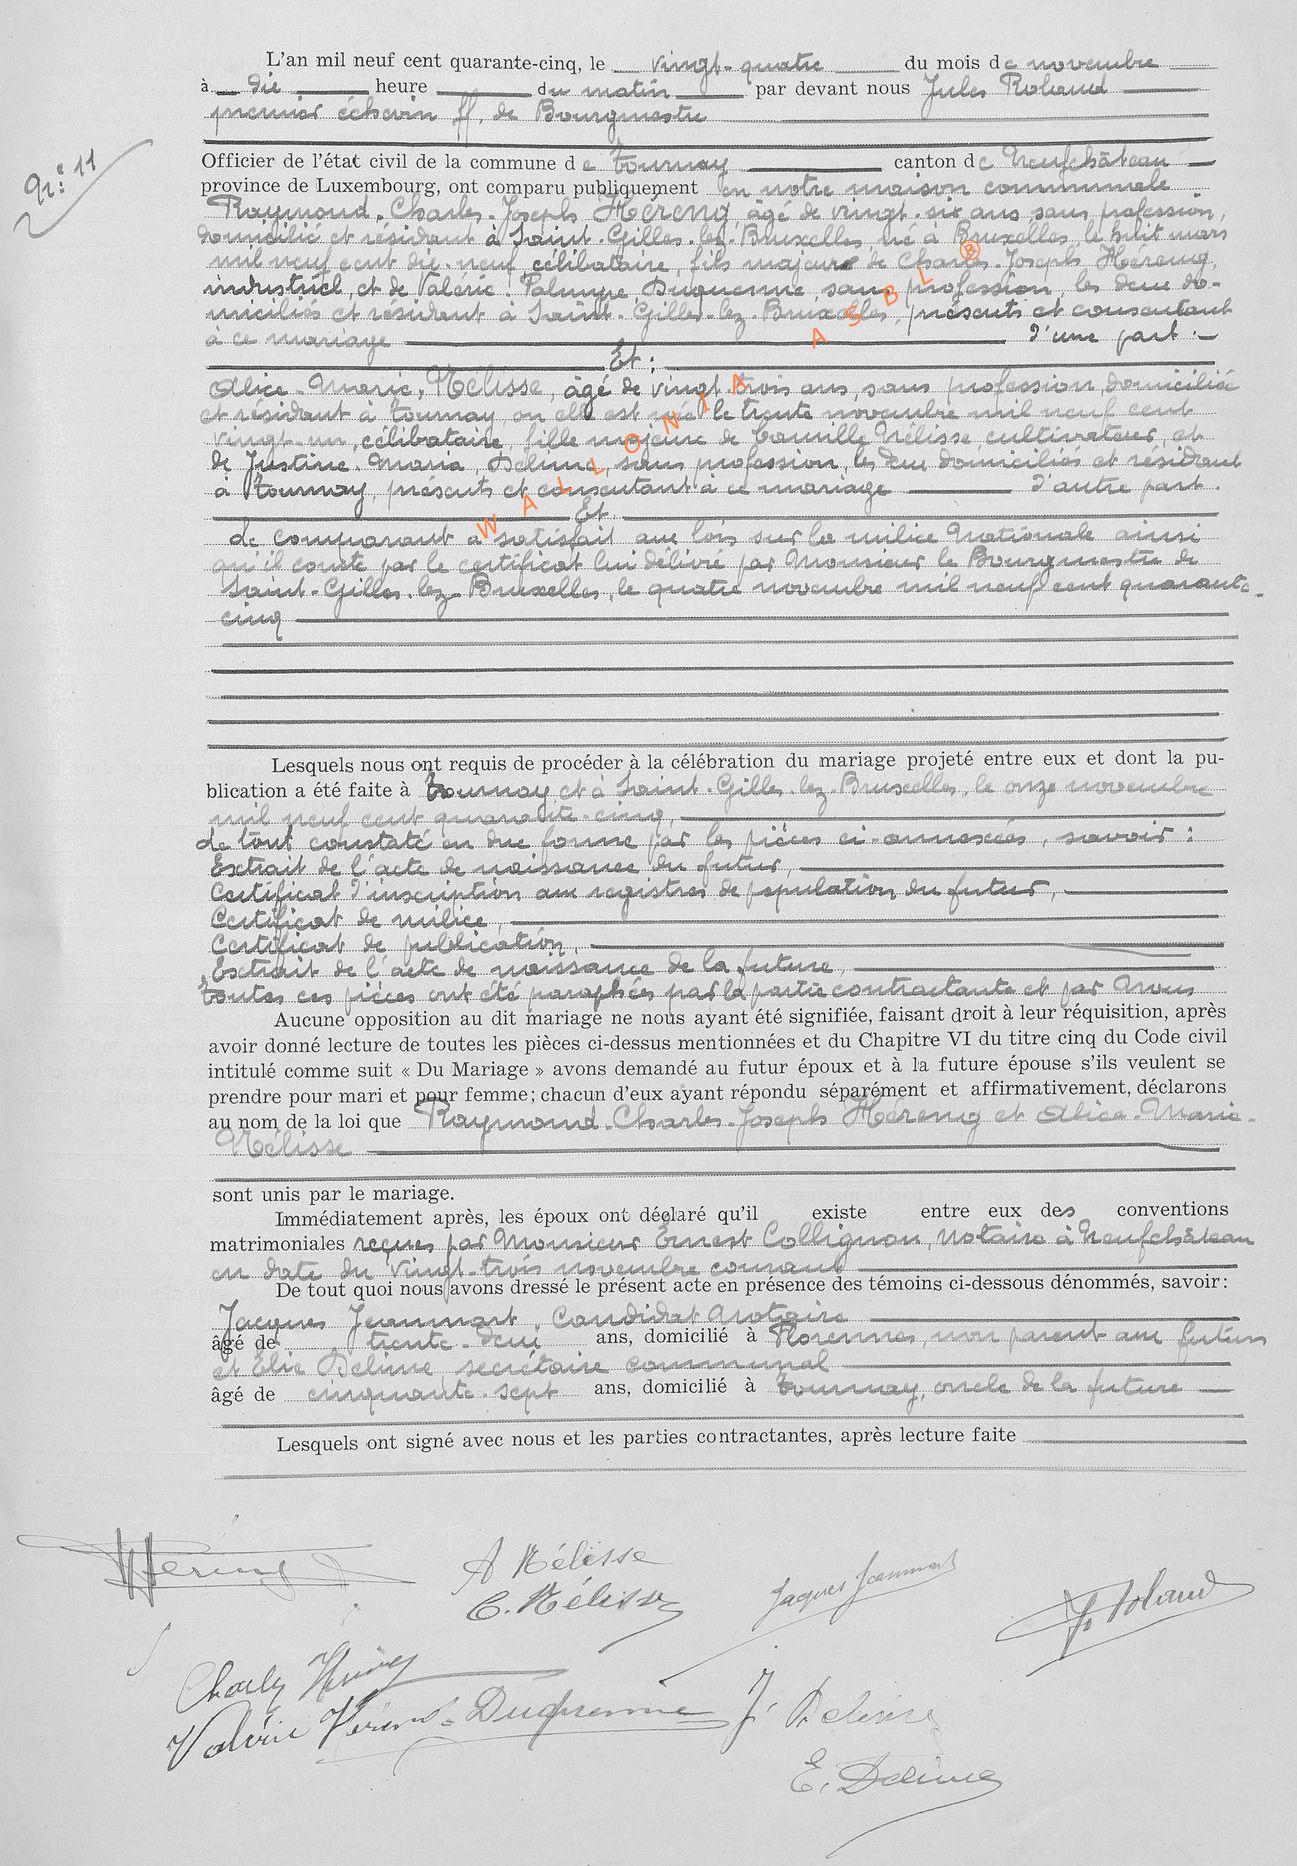 L'an mil neuf cent quarante-cinq, le vingt-quatre du mois de novembre
à dix heure du matin par devant nous Jules Roland
premier échevin ff. de Bourgmestre
N° 11
Officier de l'état civil de la commune de Tournay canton de Neufchâteau
province de Luxembourg, ont comparu publiquement en notre maison communale
Raymond-Charles-Joseph Héreng âgé de vingt-six ans, sans profession,
domicilié et résidant à Saint-Gilles-lez-Bruxelles, né à Bruxelles, le huit mars
mil neuf cent dix-neuf, célibataire, fils majeur de Charles-Joseph Héreng,
industriel, et de Valérie Palmyre Duquenne, sans profession, les deux do-
miciliés et résidant à Saint-Gilles-lez-Bruxelles, présents et consentant
à ce mariage d'une part.
Et :
Alice-Marie Nélisse, âgé de vingt-trois ans, sans profession, domiciliée
et résidant à Tournay ou elle est née le trente novembre mil neuf cent
vingt-un, célibataire, fille majeure de Camille Nélisse cultivateur, et
de Justine-Maria Delime, sans profession, les deux domiciliés et résidant
à Tournay, présents et consentant à ce mariage d'autre part.
Et
Le comparant a satisfait aux lois sur la milice Nationale ainsi
qu'il conste par le certificat lui délivré par Monsieur le Bourgmestre de
Saint-Gilles-lez-Bruxelles, le quatre novembre mil neuf cent quarante-
cinq
WALLONIA ASBL ®
Lesquels nous ont requis de procéder à la célébration du mariage projeté entre eux et dont la pu-
blication a été faite à Tournay et à Saint-Gilles-lez-Bruxelles, le onze novembre
mil neuf cent quarante-cinq,
de tout constaté en due forme par les pièces ci-annexées, savoir :
Extrait de l'acte de naissance du futur,
Certificat d'inscription aux registres de population du futur,
Certificat de milice,
Certificat de publication,
Extrait de l'acte de naissance de la future,
Toutes ces pièces ont été paraphées par la partie contractante et par Nous
Aucune opposition au dit mariage ne nous ayant été signifiée, faisant droit à leur réquisition, après
avoir donné lecture de toutes les pièces ci-dessus mentionnées et du Chapitre VI du titre cinq du Code civil
intitulé comme suit « Du Mariage » avons demandé au futur époux et à la future épouse s'ils veulent se
prendre pour mari et pour femme; chacun d'eux ayant répondu séparément et affirmativement, déclarons
au nom de la loi que Raymond-Charles-Joseph Héreng et Alice-Marie-
Nélisse
sont unis par le mariage.
Immédiatement après, les époux ont déclaré qu'il existe entre eux des conventions
matrimoniales reçues par Monsieur Ernest Collignon, Notaire à Neufchâteau
en date du vingt-trois novembre courant
De tout quoi nous avons dressé le présent acte en présence des témoins ci-dessous dénommés, savoir :
Jacques Jeanmart, Candidat Notaire
âgé de trente-deux ans, domicilié à Florennes, non parent aux futurs
et Élie Delime, secrétaire communal
âgé de cinquante-sept ans, domicilié à Tournay, oncle de la future
Lesquels ont signé avec nous et les parties contractantes, après lecture faite
Héreng
A Nélisse
C. Nélisse
Jacques Jeanmart
J. Roland
Valérie Duquenne
J. Delime
E. Delime